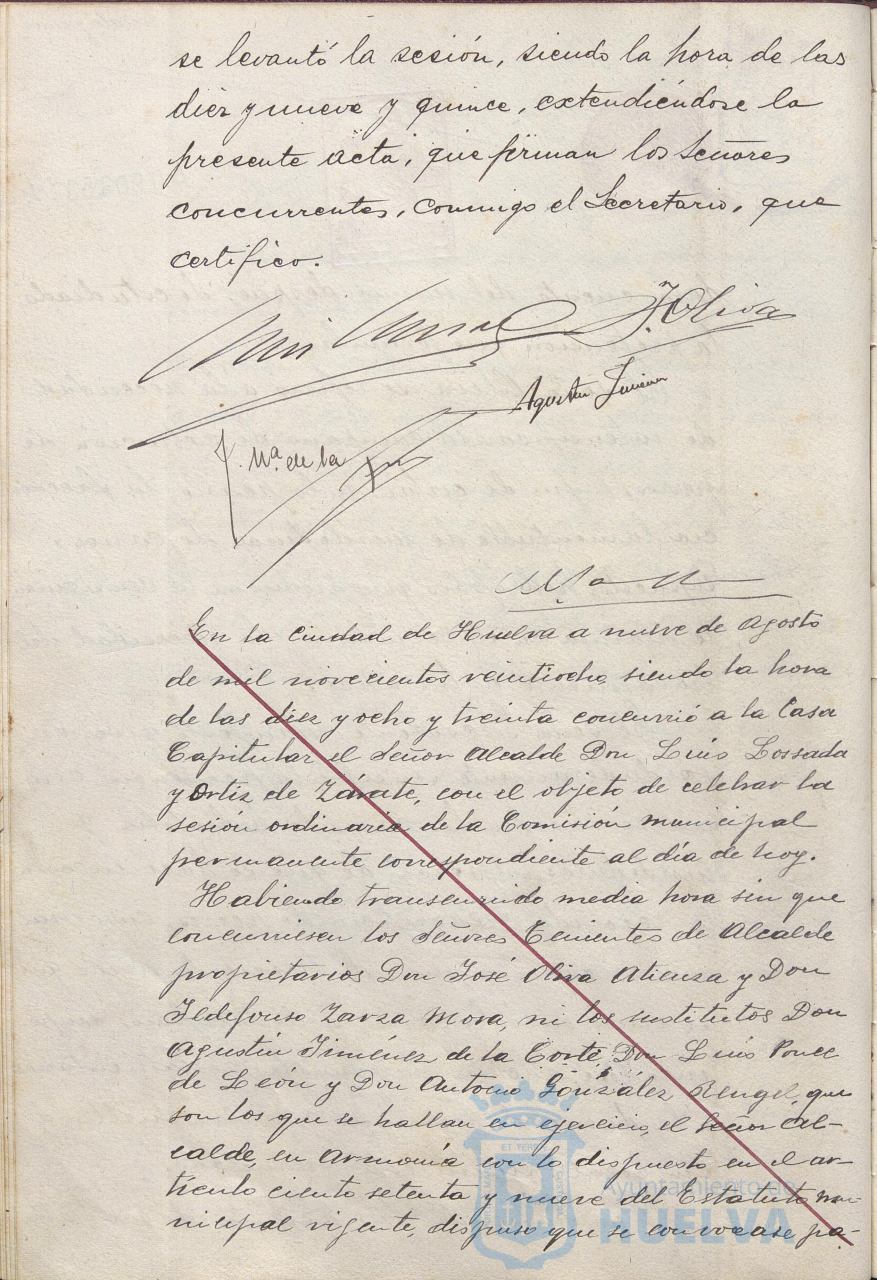 se levantó la sesión, siendo la hora de las
diez y nueve y quince, extendiéndose la
presente acta, que firman los Señores
concurrentes, conmigo el Secretario, que
certifico.
J. Oliva
Agustín Jiménez
J. Mª. de la
En la Ciudad de Huelva a nueve de Agosto
de mil novecientos veintiocho, siendo la hora
de las diez y ocho y treinta concurrió a la Casa
Capitular el Señor Alcalde Don Luís Lossada
y Ortiz de Zárate, con el objeto de celebrar la
sesión ordinaria de la Comisión municipal
permanente correspondiente al día de hoy.
Habiendo transcurrido media hora sin que
concurriesen los Señores Tenientes de Alcalde
propietarios Don José Oliva Atienza y Don
Ildefonso Zarza Mora, ni los sustitutos Don
Agustín Jiménez de la Corte, Don Luís Ponce
de León y Don Antonio González Rengel, que
son los que se hallan en ejercicio, el Señor Al-
calde, en armonía con lo dispuesto en el ar-
tículo ciento setenta y nueve del Estatuto mu-
nicipal vigente, dispuso que se convocase pa-
Ayuntamiento de
HUELVA